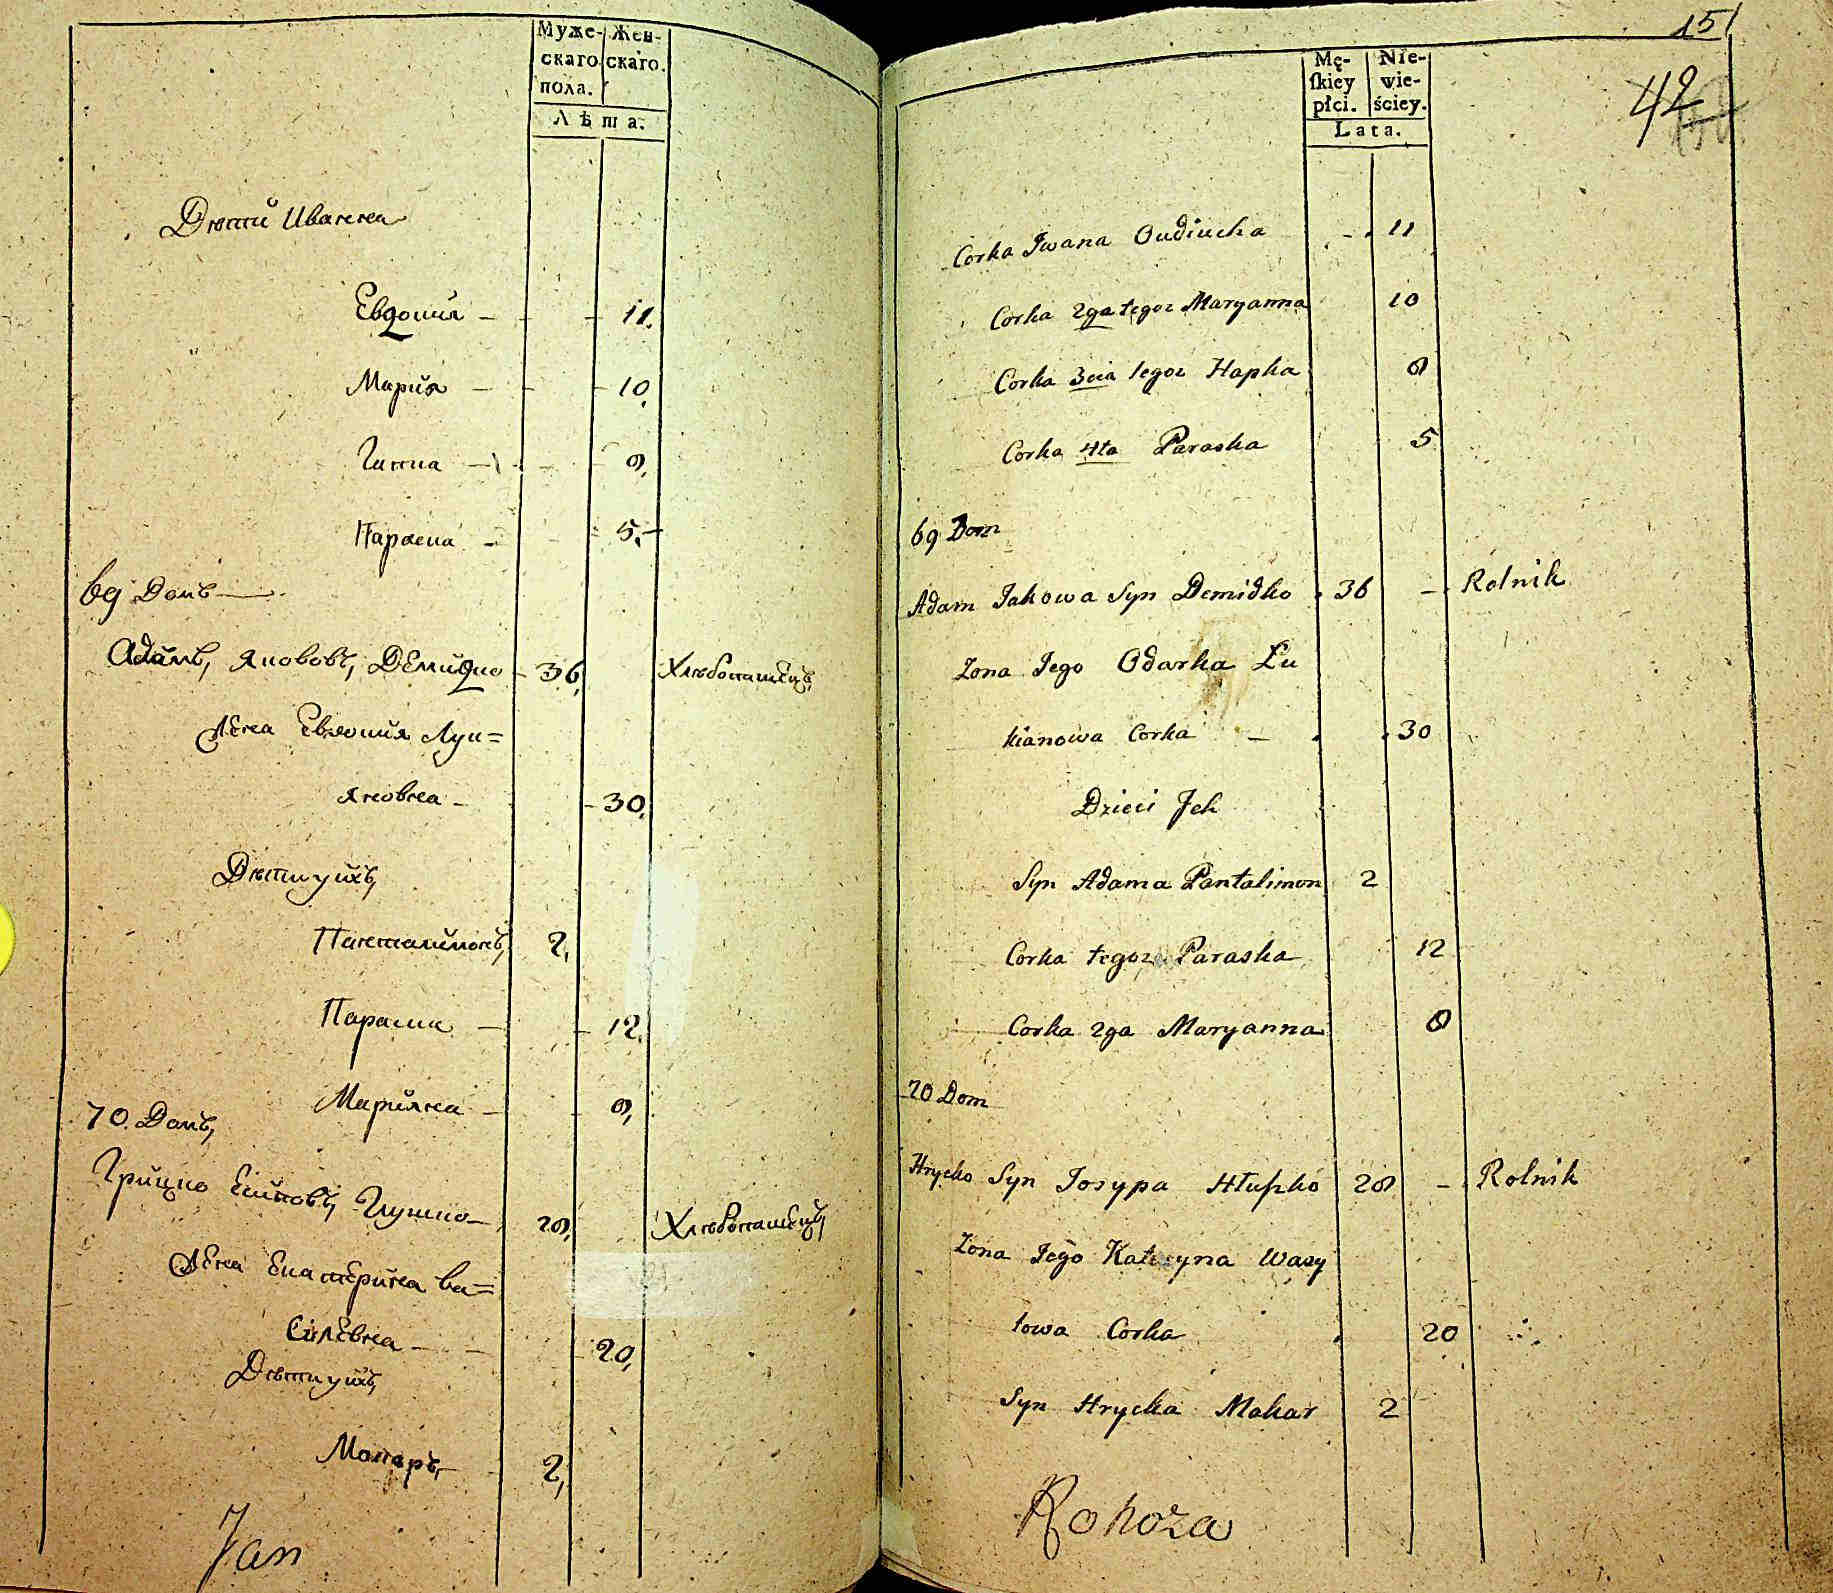 Муже-
скаго
пола.
Жен-
скаго.
Лѣта.
Дѣти Ивана
Евдокия 11.
Мария 10.
Гапка 8.
Параска 5.
69 Домъ
Адамъ, Яковъ, Демидко 36, Хлѣбопашецъ,
Жена Евдокия Луки=
яновна 30.
Дѣти ихъ,
Панталимонъ, 2,
Параска 12.
Марияна 8,
70. Домъ,
Грицко Есиповъ, Глушко 28, Хлѣбопашецъ,
Жена Екатерина Ва=
силевна 20,
Дѣти ихъ,
Макаръ, 2,
Jan
151
42
Mę-
skiey
płci.
Nie-
wie-
ściey.
Lata.
Corka Iwana Oudiucha 11
Corka 2ga tegoz Maryanna 10
Corka 3cia tegoz Hapka 8
Corka 4ta Paraska 5
69 Dom
Adam Jakowa Syn Demidko 36 Rolnik
Zona Jego Odarka Łu
kianowa Corka 30
Dzieci Jch
Syn Adama Pantalimon 2
Corka tegoz Paraska 12
Corka 2ga Maryanna 8
70 Dom
Hrycko Syn Josypa Hłuszko 28 Rolnik
Zona Jego Kateryna Wasy
lowa Corka 20
Syn Hrycka Makar 2
Rohoza